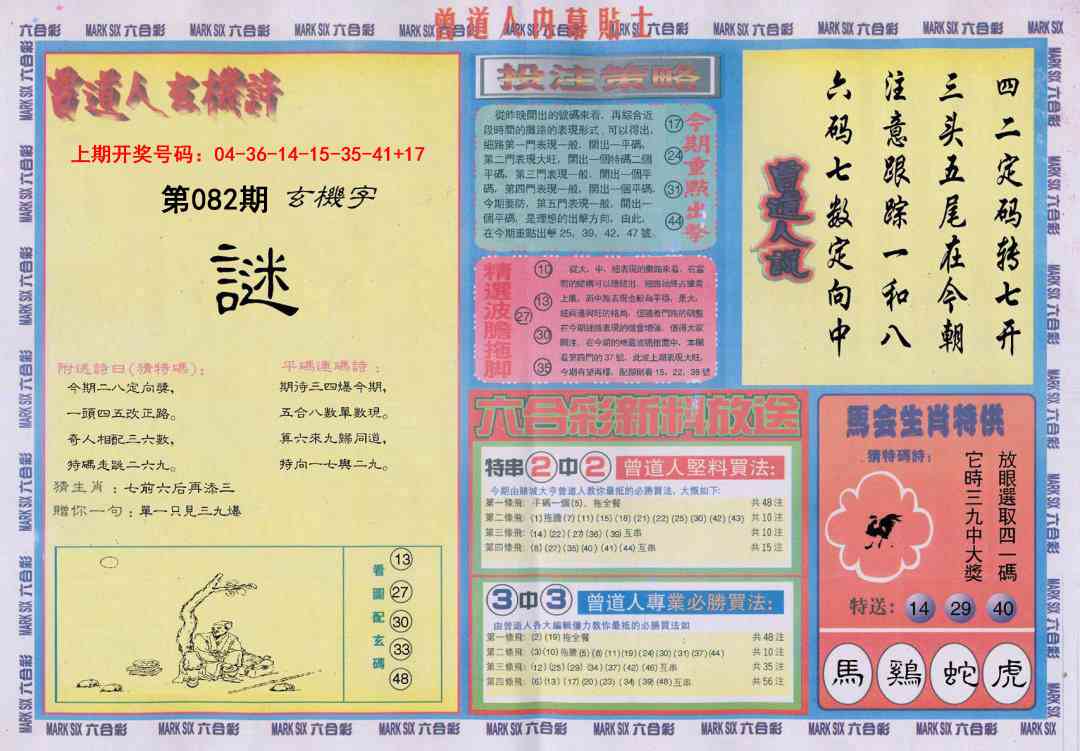 曾道人内幕貼士
六合彩 MARK SIX 六合彩 MARK SIX 六合彩 MARK SIX 六合彩 MARK SIX 六合彩
曾道人玄機詩
上期开奖号码：04-36-14-15-35-41+17
第082期 玄機字
謎
附送詩曰(猜特碼)：
今期二八定向獎，
一頭四五改正路。
奇人相配三六數，
特碼走跳二六九。
平碼連碼詩：
期待三四爆今期，
五合八數單數現。
算六來九歸同道，
特向一七與二九。
猜生肖：七前六后再添三
贈你一句：單一只見三九爆
看圖配玄碼
13
27
30
33
48
投注策略
從昨晚開出的號碼來看，再綜合近
段時間的攤綠的表現形式，可以得出，
細路第一門表現一般，開出一平碼，
第二門表現大旺，開出一個特碼二個
平碼，第三門表現一般，開出一個平
碼，第四門表現一般，開出一個平碼，
今期要防，第五門表現一般，開出一
個平碼，是理想的出擊方向，由此，
在今期重點出擊 25、39、42、47 號
今期重點出擊
17
24
31
44
精選波膽拖腳
10
13
27
30
35
今期有望再爆，配腳則看 15、22、39 號
四二定码转七开
三头五尾在今朝
注意跟踪一和八
六码七数定向中
曾道人説
六合彩新料放送
特串2中2 曾道人堅料買法：
今期由賭城大亨曾道人教你最抵的必勝買法，大概如下：
第一條飛：平碼一個(5)，拖全餐 共48注
第二條飛：(1)拖膽(7)(11)(15)(18)(21)(22)(25)(30)(42)(43) 共10注
第三條飛：(14)(22)(27)(36)(39)互串 共10注
第四條飛：(8)(27)(35)(40)(41)(44)互串 共15注
3中3 曾道人專業必勝買法：
由曾道人各大編輯僅力教你最抵的必勝買法如
第一條飛：(2)(19)拖全餐 共48注
第二條飛：(3)(10)拖膽(5)(8)(11)(19)(24)(30)(31)(37)(44) 共10注
第三條飛：(12)(25)(29)(34)(37)(42)(46)互串 共35注
第四條飛：(6)(13)(17)(20)(23)(34)(39)(48)互串 共56注
馬会生肖特供
猜特碼詩：
放眼選取四一碼
它時三九中大獎
特送：14 29 40
馬 鷄 蛇 虎
MARK SIX 六合彩 MARK SIX 六合彩 MARK SIX 六合彩 MARK SIX 六合彩